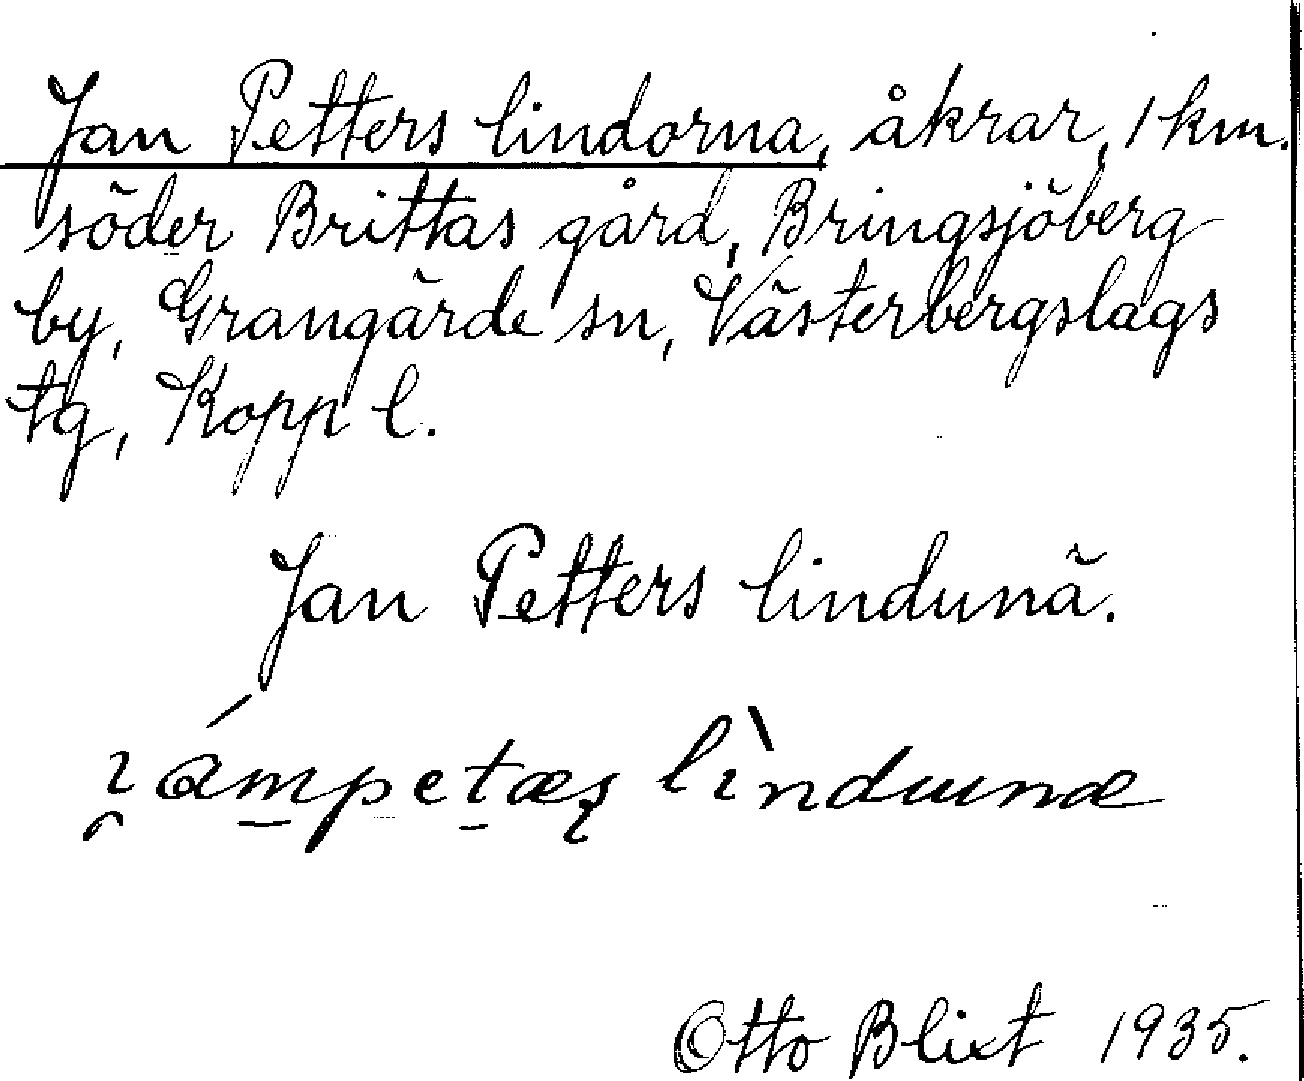 Jan Petters lindorna, åkrar, 1 km.
söder Brittas gård, Bringsjöberg
by, Grangärde sn, Västerbergslags
tg, Kopp l.
Jan Petters lindunä.
Otto Blixt 1935.